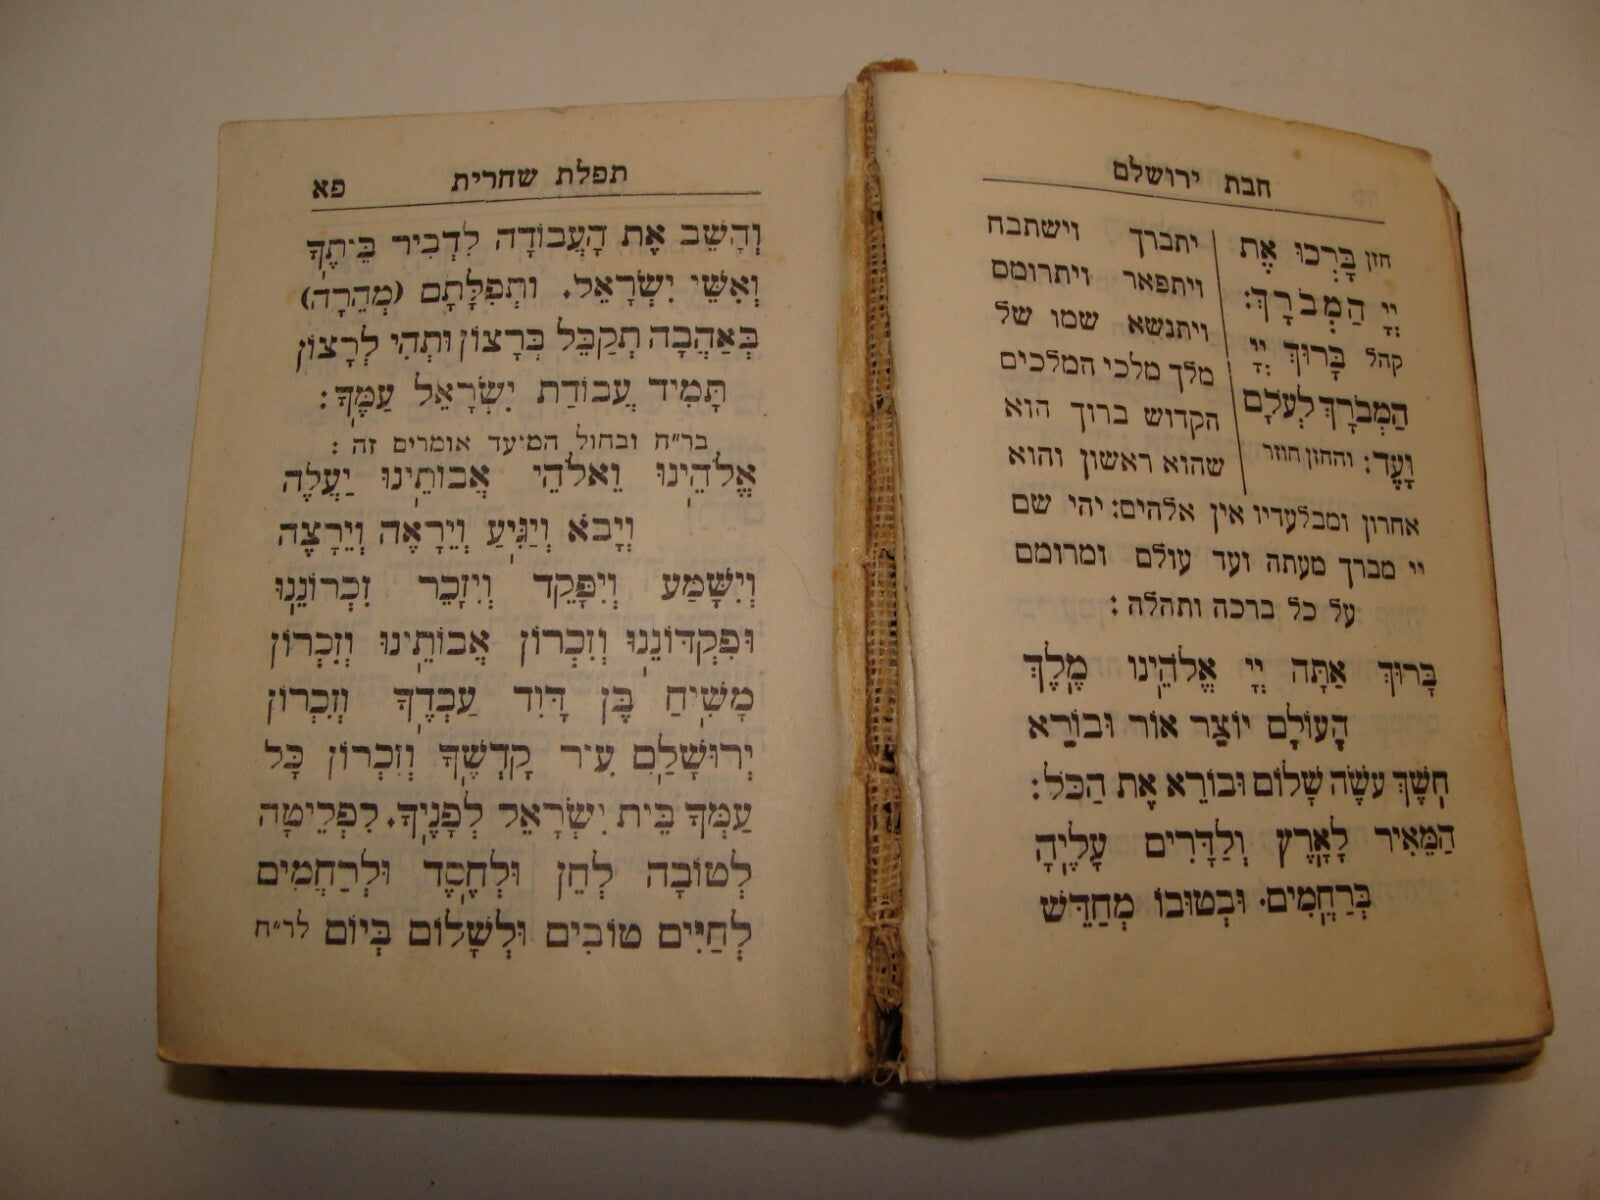 חבת ירושלם
חזן בָּרְכוּ אֶת
יְיָ הַמְבֹרָךְ:
קהל בָּרוּךְ יְיָ
הַמְבֹרָךְ לְעֹלָם
וָעֶד: והחזן חוזר
יתברך וישתבח
ויתפאר ויתרומם
ויתנשא שמו של
מלך מלכי המלכים
הקדוש ברוך הוא
שהוא ראשון והוא
אחרון ומבלעדיו אין אלהים: יהי שם
יי מברך מעתה ועד עולם ומרומם
על כל ברכה ותהלה:
בָּרוּךְ אַתָּה יְיָ אֱלֹהֵינוּ מֶלֶךְ
הָעוֹלָם יוֹצֵר אוֹר וּבוֹרֵא
חֹשֶׁךְ עֹשֶׂה שָׁלוֹם וּבוֹרֵא אֶת הַכֹּל:
הַמֵּאִיר לָאָרֶץ וְלַדָּרִים עָלֶיהָ
בְּרַחֲמִים. וּבְטוּבוֹ מְחַדֵּשׁ
תפלת שחרית פא
וְהָשֵׁב אֶת הָעֲבוֹדָה לִדְבִיר בֵּיתֶךָ
וְאִשֵּׁי יִשְׂרָאֵל. וּתְפִלָּתָם (מְהֵרָה)
בְּאַהֲבָה תְקַבֵּל בְּרָצוֹן וּתְהִי לְרָצוֹן
תָּמִיד עֲבוֹדַת יִשְׂרָאֵל עַמֶּךָ:
בר״ח ובחול המיעד אומרים זה:
אֱלֹהֵינוּ וֵאלֹהֵי אֲבוֹתֵינוּ יַעֲלֶה
וְיָבֹא וְיַגִּיעַ וְיֵרָאֶה וְיֵרָצֶה
וְיִשָּׁמַע וְיִפָּקֵד וְיִזָּכֵר זִכְרוֹנֵנוּ
וּפִקְדוֹנֵנוּ וְזִכְרוֹן אֲבוֹתֵינוּ וְזִכְרוֹן
מָשִׁיחַ בֶּן דָּוִד עַבְדֶּךָ וְזִכְרוֹן
יְרוּשָׁלַםִ עִיר קָדְשֶׁךָ וְזִכְרוֹן כָּל
עַמְּךָ בֵּית יִשְׂרָאֵל לְפָנֶיךָ. לִפְלֵיטָה
לְטוֹבָה לְחֵן וּלְחֶסֶד וּלְרַחֲמִים
לְחַיִּים טוֹבִים וּלְשָׁלוֹם בְּיוֹם לר״ח